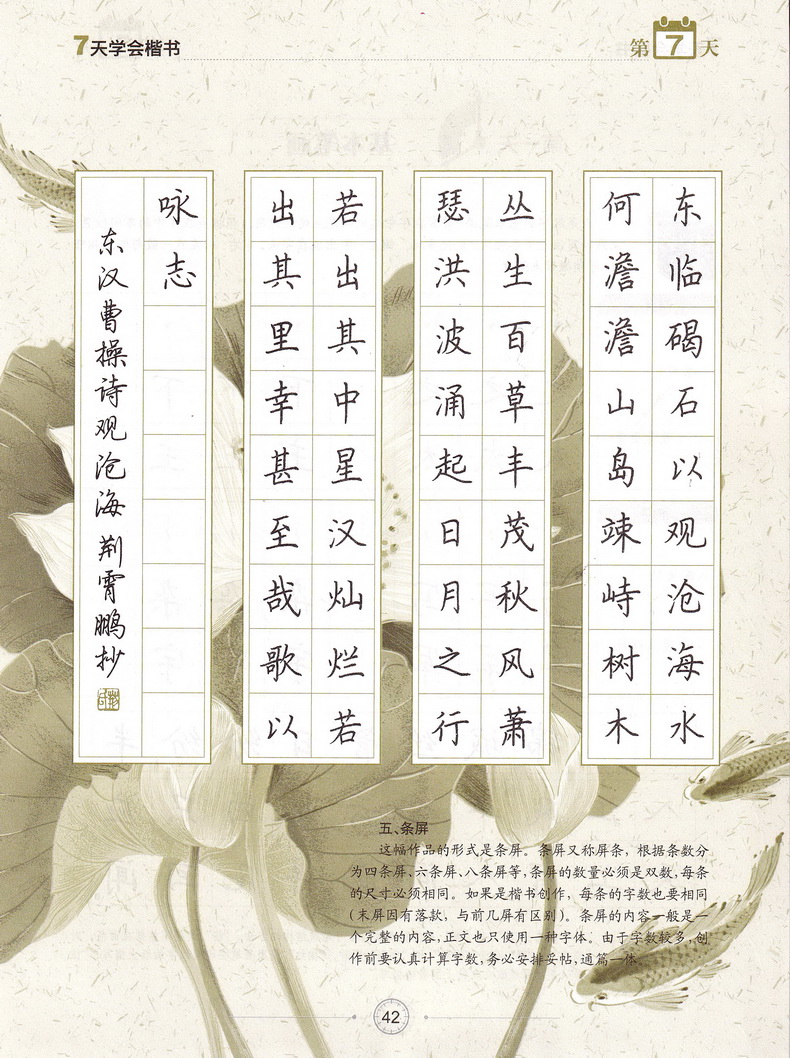 7天学会楷书
第7天
东临碣石以观沧海水
何澹澹山岛竦峙树木
丛生百草丰茂秋风萧
瑟洪波涌起日月之行
若出其中星汉灿烂若
出其里幸甚至哉歌以
咏志
东汉曹操诗观沧海 荆霄鹏抄
五、条屏
这幅作品的形式是条屏。条屏又称屏条，根据条数分
为四条屏、六条屏、八条屏等，条屏的数量必须是双数，每条
的尺寸必须相同。如果是楷书创作，每条的字数也要相同
（末屏因有落款，与前几屏有区别）。条屏的内容一般是一
个完整的内容，正文也只使用一种字体。由于字数较多，创
作前要认真计算字数，务必安排妥帖，通篇一体
42